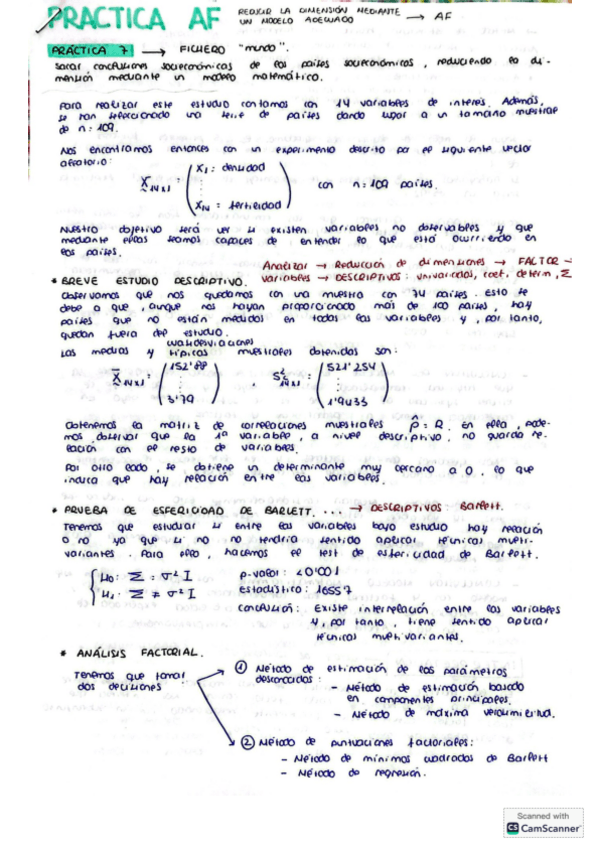 PRACTICA AF REDUCIR LA DIMENSIÓN MEDIANTE UN MODELO ADECUADO → AF
PRÁCTICA 7 → FICHERO "mundo".
sacar conclusiones socioeconómicas de los países socioeconómicos, reduciendo la di-
mensión mediante un modelo matemático.
Para realizar este estudio contamos con 14 variables de interés. Además,
se han seleccionado una serie de países dando lugar a un tamaño muestral
de n = 109.
Nos encontramos entonces con un experimento descrito por el siguiente vector
aleatorio:
X₁: densidad
X 14x1 = ⋮ con n = 109 países.
X14 = fertilidad
Nuestro objetivo será ver si existen variables no observables y que
mediante ellas seamos capaces de entender lo que está ocurriendo en
los países.
Analizar → Reducción de dimensiones → FACTOR -
* BREVE ESTUDIO DESCRIPTIVO. variables → DESCRIPTIVOS: univariados, coef. determ, Σ
Observamos que nos quedamos con una muestra con 74 países. Esto se
debe a que, aunque nos hayan proporcionado más de 100 países, hay
países que no están medidos en todas las variables y, por tanto,
quedan fuera del estudio.
cuasidesviaciones
Las medias y típicas muestrales obtenidas son:
152'88 521'254
X̄ 14x1 = ⋮ , S² 14x1 = ⋮
3'79 1'9433
Obtenemos la matriz de correlaciones muestrales ρ̂ = R. En ella, pode-
mos observar que la 1ª variable, a nivel descriptivo, no guarda re-
lación con el resto de variables.
Por otro lado, se obtiene un determinante muy cercano a 0, lo que
indica que hay relación entre las variables.
* PRUEBA DE ESFERICIDAD DE BARLETT. ... → DESCRIPTIVOS: Barlett.
Tenemos que estudiar si entre las variables bajo estudio hay relación
o no ya que si no no tendría sentido aplicar técnicas multi-
variantes. Para ello, hacemos el test de esfericidad de Barlett.
H₀: Σ = σ² I p-valor: <0'001
H₁: Σ ≠ σ² I estadístico: 16557
conclusión: Existe interrelación entre las variables
y, por tanto, tiene sentido aplicar
técnicas multivariantes.
* ANÁLISIS FACTORIAL.
Tenemos que tomar
dos decisiones
① Método de estimación de los parámetros
desconocidos:
- Método de estimación basado
en componentes principales.
- Método de máxima verosimilitud.
② Método de puntuaciones factoriales:
- Método de mínimos cuadrados de Barlett
- Método de regresión.
Scanned with
CS CamScanner